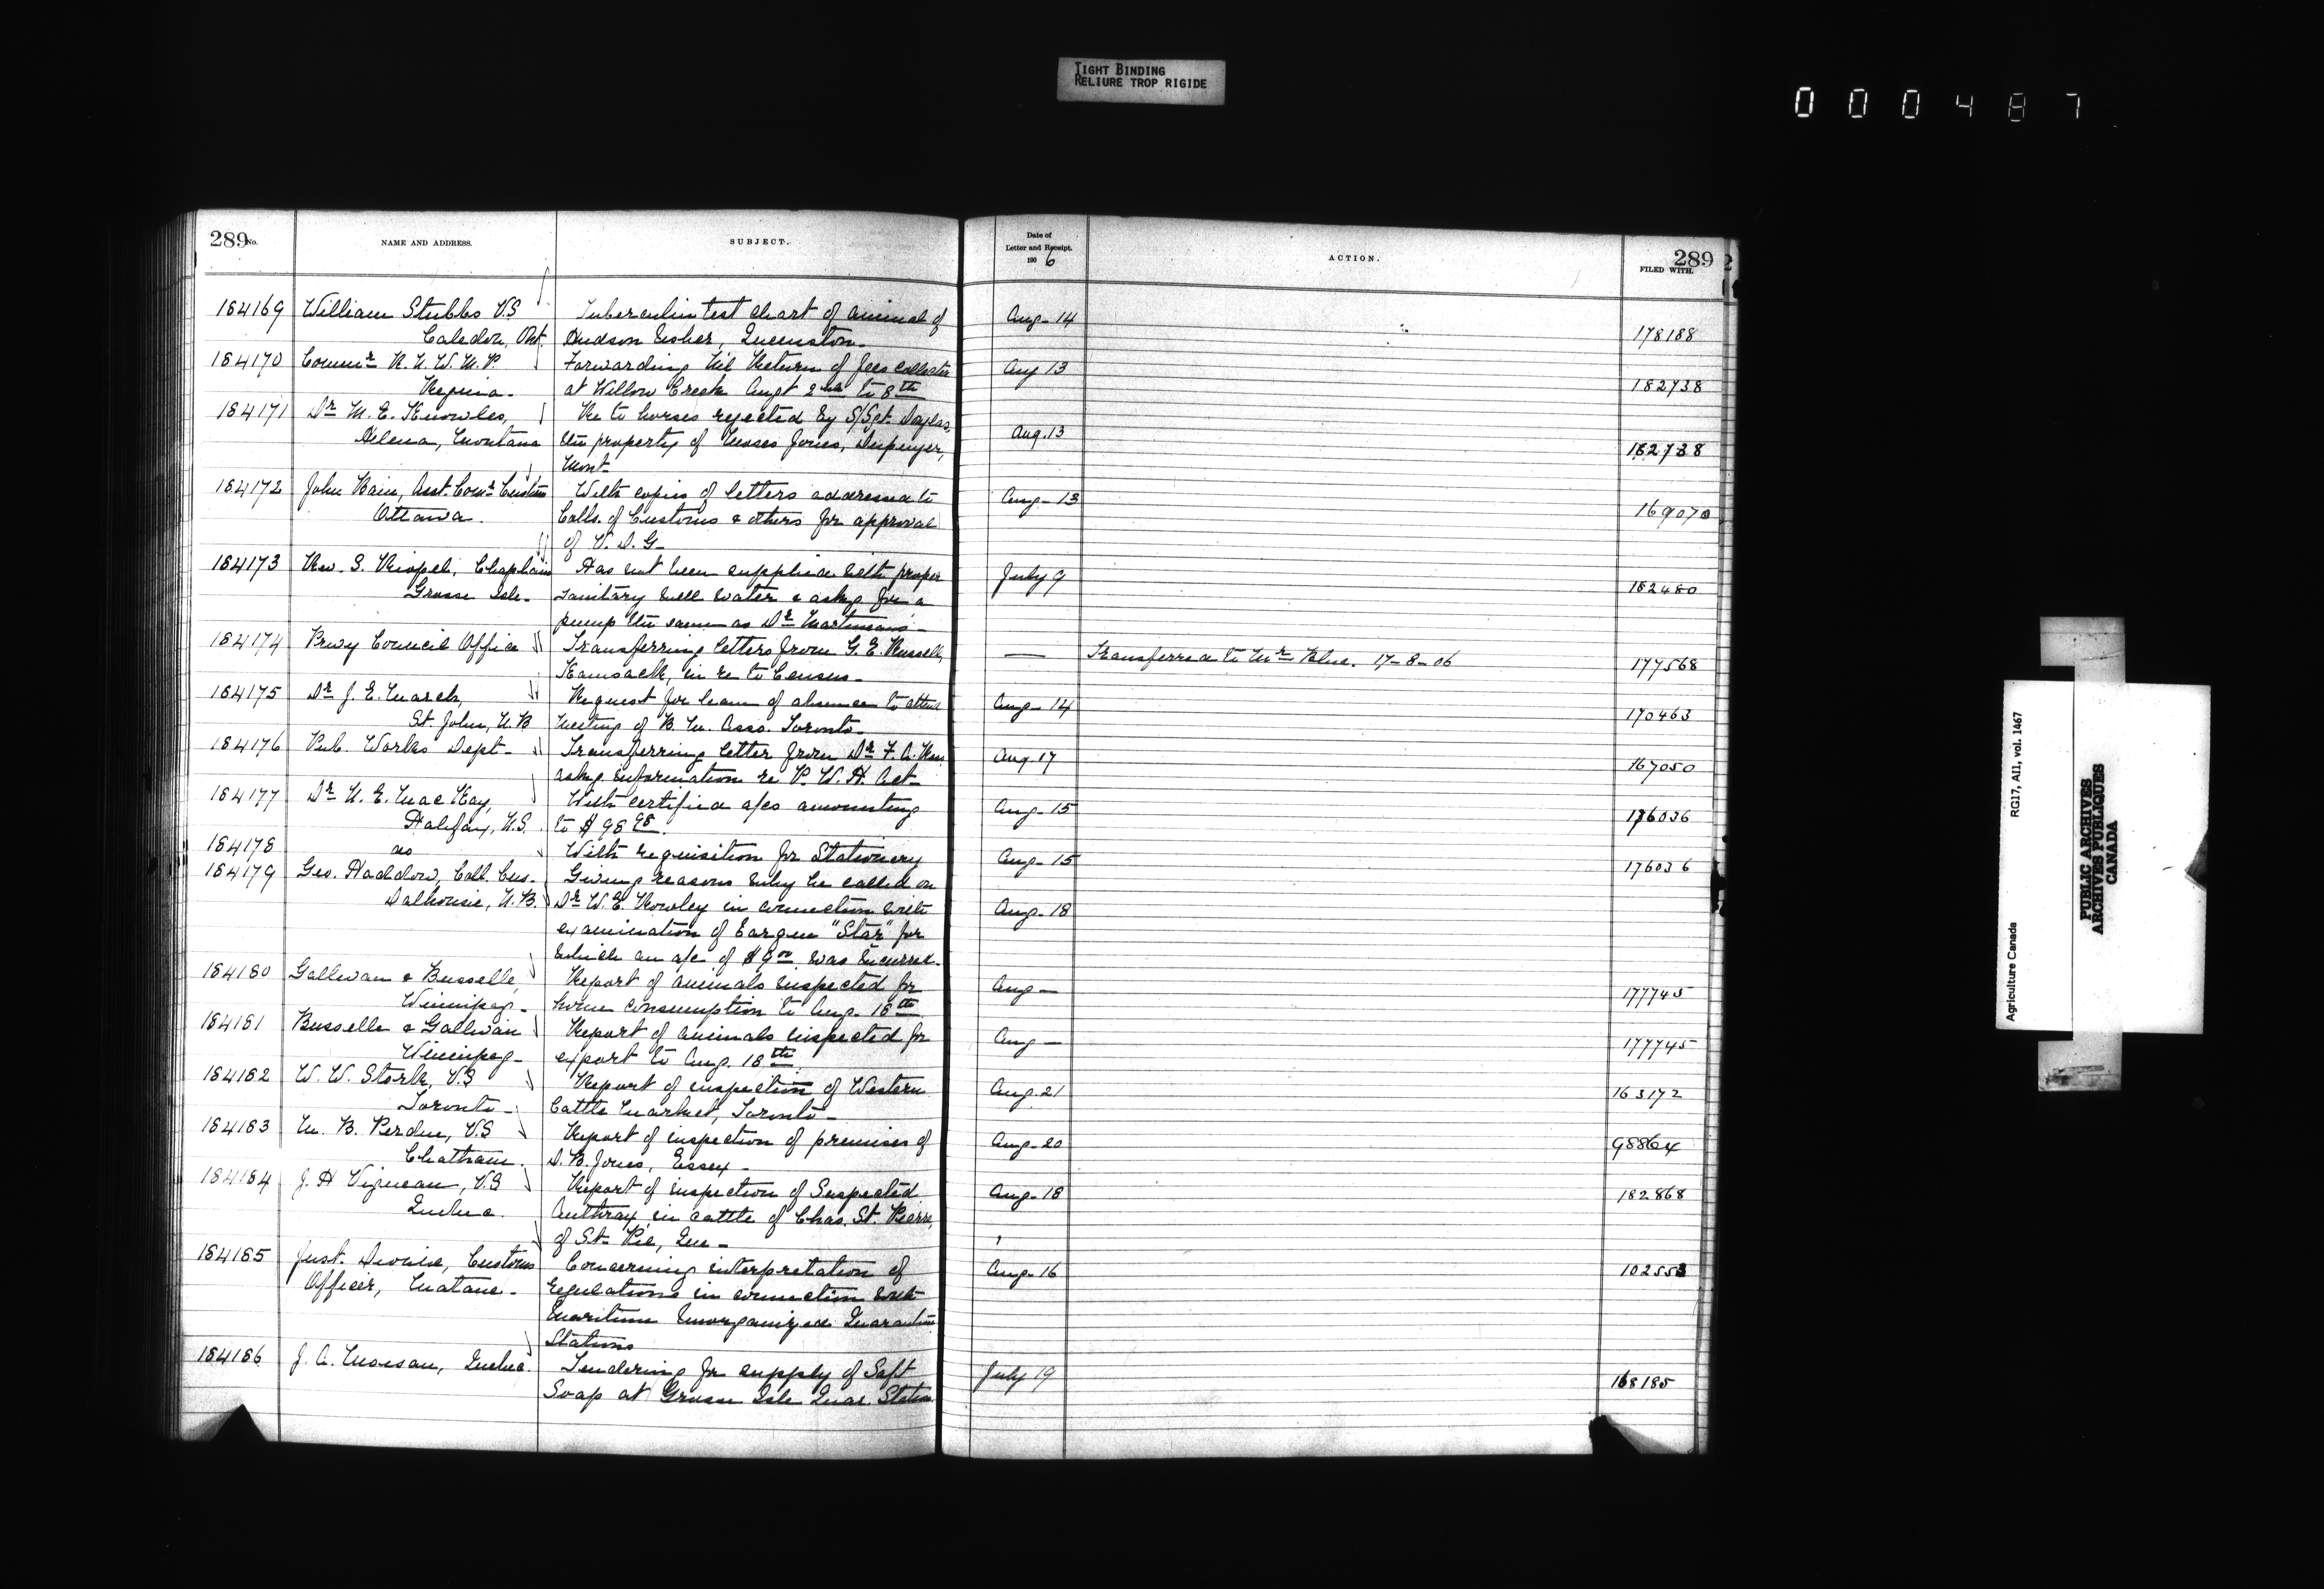 TIGHT BINDING
RELIURE TROP RIGIDE
000487
289 No.
NAME AND ADDRESS.
SUBJECT.
Date of
Letter and Receipt.
1906
ACTION.
289
FILED WITH.
184169 William Stubbs V.S Tuberculin test chart of animal of Aug- 14
Caledon, Ont. Hudson Usher, Queenston- 178188
184170 Commr R.N.W.M.P. Forwarding Nil Return of fees collected Aug 13
Regina- at Willow Creek Augt 2nd to 8th 182738
184171 Dr M. E. Knowles, Re to horses rejected by S/Sgt. Douglas,
Helena, Montana the property of Moses Jones, Dupuyer, Aug. 13 182738
Mont-
184172 John Bain, Asst. Comr Customs With copies of letters addressed to Aug- 13
Ottawa. Colls. of Customs & others for approval 169070
of V. D. G-
184173 Rev. S. Riopel, Chaplain Has not been supplied with proper July 9
Grosse Isle- sanitary well water & askg for a 182480
pump the same as Dr Martineau's-
184174 Privy Council Office Transferring letters from G. E. Russell, — Transferred to Mr Blue. 17-8-06 177568
Kamsack, in re to Census-
184175 Dr J. E. March, Request for leave of absence to attend Aug- 14
St. John, N.B Meeting of B. M. Asso. Toronto- 170463
184176 Pub. Works Dept- Transferring letter from Dr F. A. Aug. 17
askg information re P. W. H. Act- 167050
184177 Dr N. E. MacKay, With certified a/cs amounting Aug- 15
Halifax, N.S. to $98 98. 176036
184178 do With requisition for Stationery Aug- 15 176036
184179 Geo. Haddow, Coll. Cus. Giving reasons why he called on
Dalhousie, N.B. Dr W. E. Rowley in connection with Aug- 18
examination of Barque "Star" for
which an a/c of $8 00 was incurred.
184180 Gallivan & Busselle, Report of animals inspected for Aug —
Winnipeg- home consumption to Aug. 18th 177745
184181 Busselle & Gallivan Report of animals inspected for Aug —
Winnipeg- export to Aug. 18th. 177745
184182 W. W. Stork, V.S Report of inspection of Western Aug. 21 163172
Toronto- Cattle Market, Toronto-
184183 M. B. Perdue, V.S Report of inspection of premises of Aug- 20 98864
Chatham. D. B. Jones, Essex-
184184 J. H Vigneau, V.S Report of inspection of Suspected Aug- 18 182868
Quebec. Anthrax in cattle of Chas. St. Pierre,
of St- Pie, Que-
184185 Just. Dionne, Customs Concerning interpretation of Aug- 16 102553
Officer, Matane- Regulations in connection with
Maritime Unorganized Quarantine
Stations
184186 J. A. Moisan, Quebec. Tendering for supply of Soft July 19 168185
Soap at Grosse Isle Quar. Station
Agriculture Canada RG17, AII, vol. 1467
PUBLIC ARCHIVES
ARCHIVES PUBLIQUES
CANADA